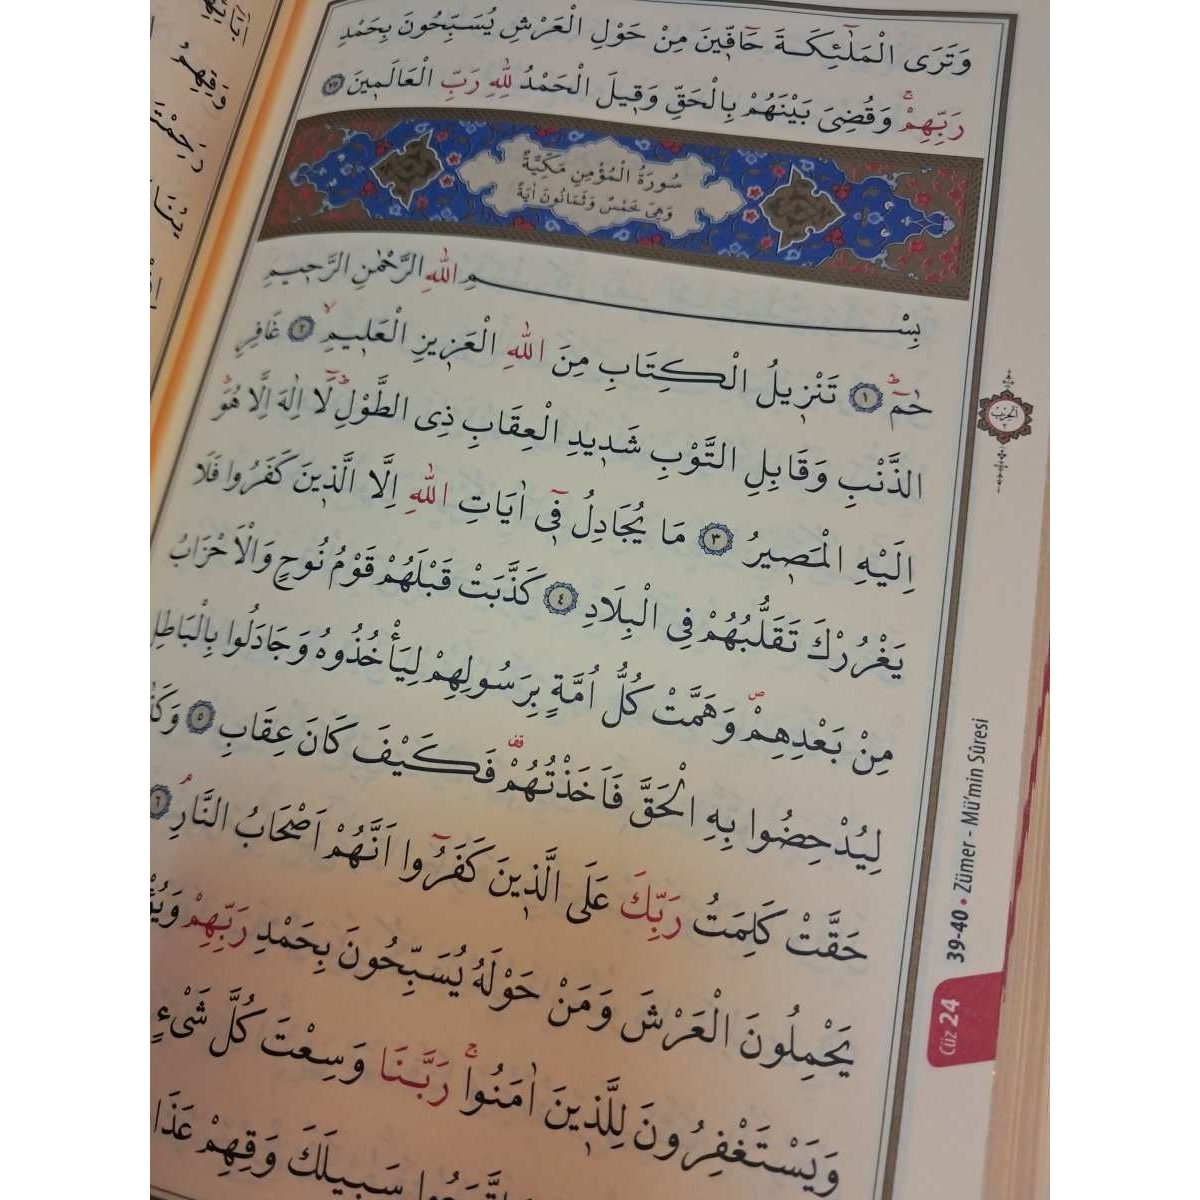 وَتَرَى الْمَلٰٓئِكَةَ حَٓافّ۪ينَ مِنْ حَوْلِ الْعَرْشِ يُسَبِّحُونَ بِحَمْدِ
رَبِّهِمْۚ وَقُضِيَ بَيْنَهُمْ بِالْحَقِّ وَق۪يلَ الْحَمْدُ لِلّٰهِ رَبِّ الْعَالَم۪ينَ ﴿٧٥﴾
سُورَةُ الْمُؤْمِنِ مَكِّيَّةٌ
وَهِيَ خَمْسٌ وَثَمَانُونَ اٰيَةً
بِسْمِ اللّٰهِ الرَّحْمٰنِ الرَّح۪يمِ
حٰمٓۜ ﴿١﴾ تَنْز۪يلُ الْكِتَابِ مِنَ اللّٰهِ الْعَز۪يزِ الْعَل۪يمِۙ ﴿٢﴾ غَافِرِ
الذَّنْبِ وَقَابِلِ التَّوْبِ شَد۪يدِ الْعِقَابِ ذِي الطَّوْلِۜ لَٓا اِلٰهَ اِلَّا هُوَۜ
اِلَيْهِ الْمَص۪يرُ ﴿٣﴾ مَا يُجَادِلُ ف۪ٓي اٰيَاتِ اللّٰهِ اِلَّا الَّذ۪ينَ كَفَرُوا فَلَا
يَغْرُرْكَ تَقَلُّبُهُمْ فِي الْبِلَادِ ﴿٤﴾ كَذَّبَتْ قَبْلَهُمْ قَوْمُ نُوحٍ وَالْاَحْزَابُ
مِنْ بَعْدِهِمْۖ وَهَمَّتْ كُلُّ اُمَّةٍ بِرَسُولِهِمْ لِيَأْخُذُوهُ وَجَادَلُوا بِالْبَاطِلِ
لِيُدْحِضُوا بِهِ الْحَقَّ فَاَخَذْتُهُمْ۠ فَكَيْفَ كَانَ عِقَابِ ﴿٥﴾
حَقَّتْ كَلِمَتُ رَبِّكَ عَلَى الَّذ۪ينَ كَفَرُٓوا اَنَّهُمْ اَصْحَابُ النَّارِۢ ﴿٦﴾
يَحْمِلُونَ الْعَرْشَ وَمَنْ حَوْلَهُ يُسَبِّحُونَ بِحَمْدِ رَبِّهِمْ
وَيَسْتَغْفِرُونَ لِلَّذ۪ينَ اٰمَنُواۚ رَبَّنَا وَسِعْتَ كُلَّ شَيْءٍ
سَب۪يلَكَ وَقِهِمْ
الحزب
39-40 • Zümer - Mü'min Sûresi
Cüz 24